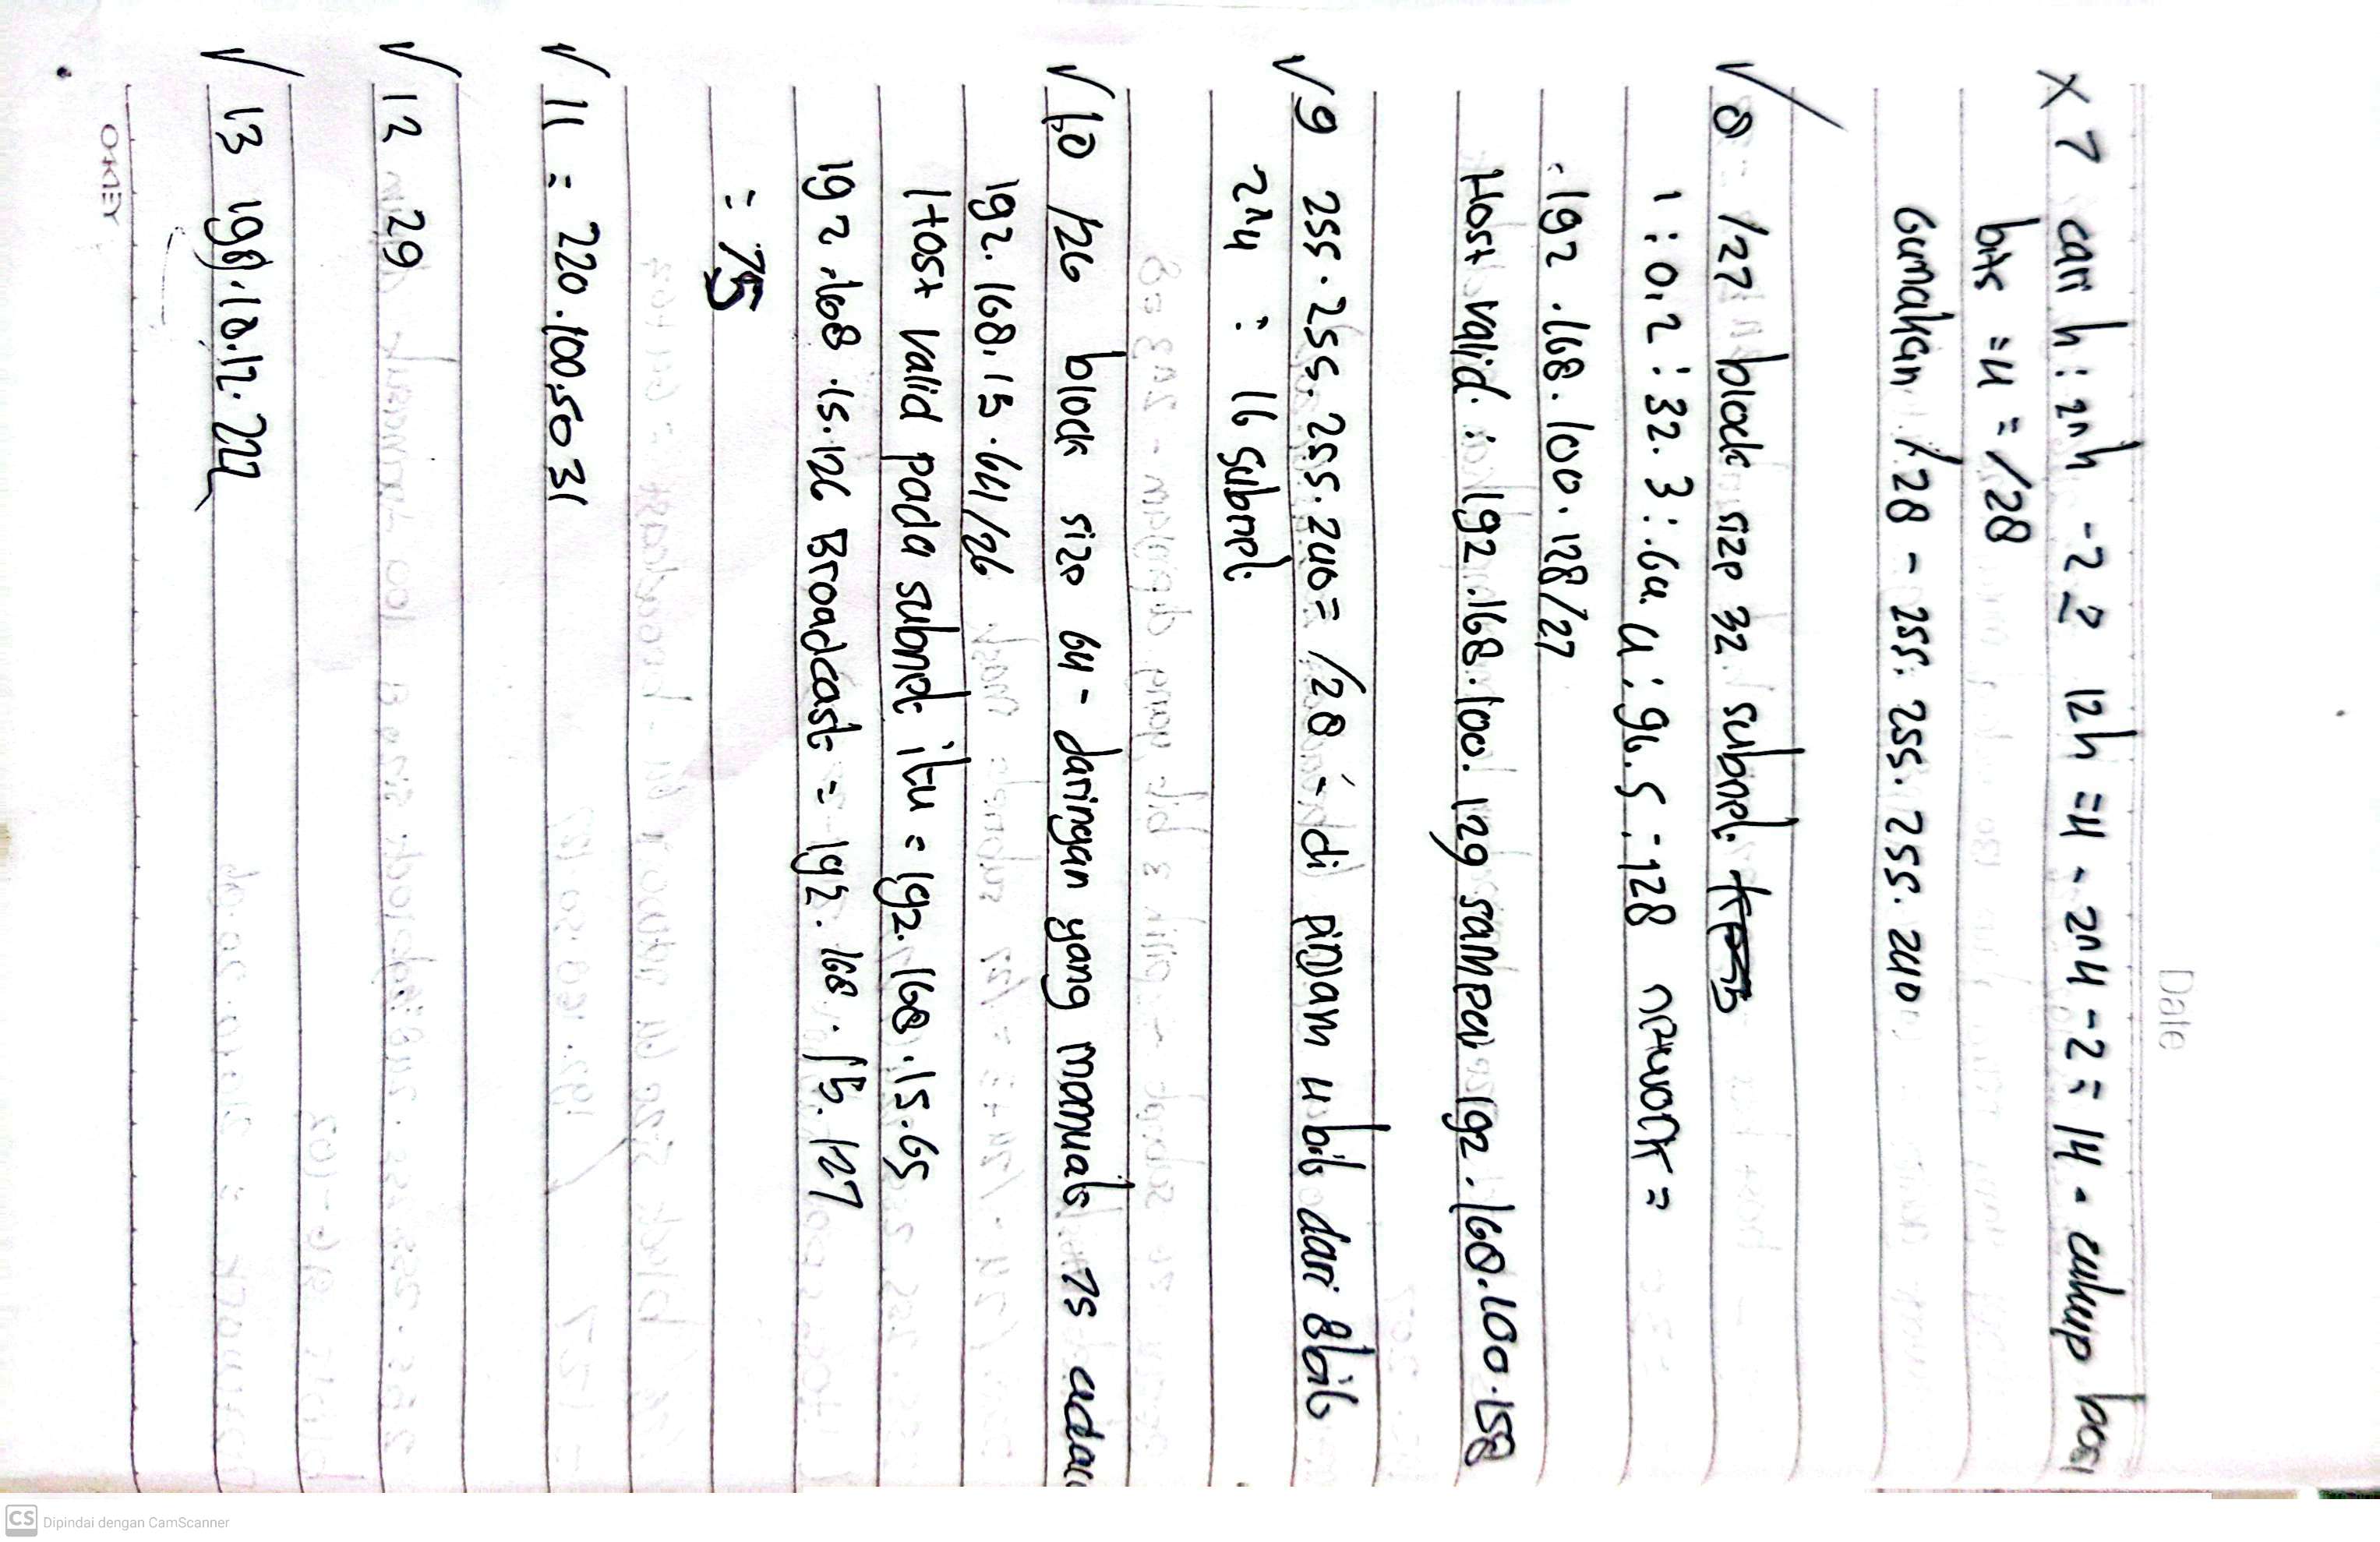 Date
X 7 cari h : 2^h - 2 ≥ 12 h = 4 - 2^4 - 2 = 14 - cukup host
bits = 4 = /28
Gunakan /28 - 255. 255. 255. 240
√ 8 /27 block size 32 subnet
1 : 0. 2 : 32. 3 : 64 4 : 96. 5 : 128 network =
192 .168. 100. 128/27
Host valid : 192 .168. 100. 129 sampai 192. 168.100.158
√ 9 255. 255. 255. 240 = /28 - di pinjam 4 bit dari 8 bit
2^4 : 16 subnet
√ 10 /26 block size 64 - jaringan yang memuat 75 adalah
192. 168. 15. 64/26
Host valid pada subnet itu = 192. 168. 15. 65
192 .168 .15. 126 Broadcast = 192. 168. 15. 127
= 75
√ 11 = 220 .100.50 31
√ 12 29
√ 13 198.18.12.222
OKEY
CS Dipindai dengan CamScanner